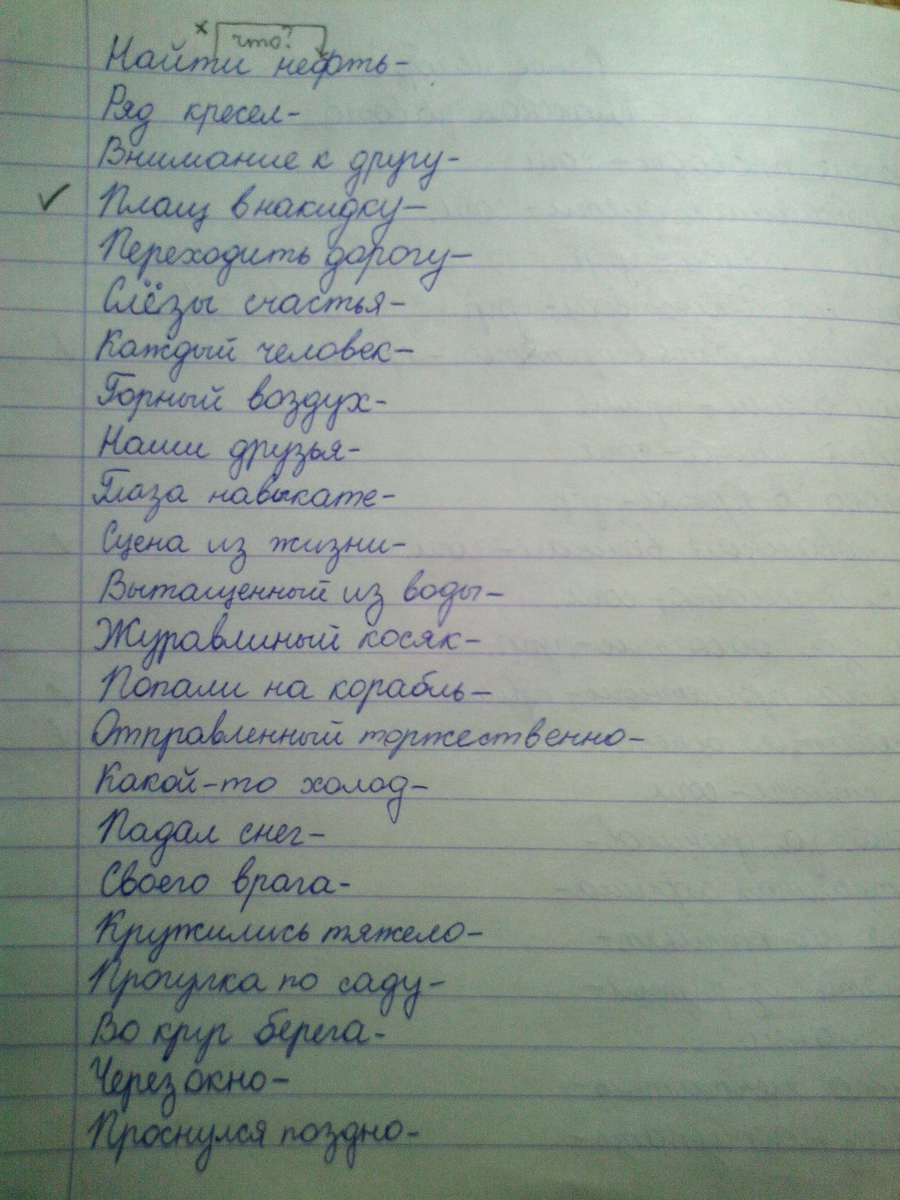 х что?
Найти нефть-
Ряд кресел-
Внимание к другу-
✓ Плащ внакидку-
Переходить дорогу-
Слёзы счастья-
Каждый человек-
Горный воздух-
Наши друзья-
Глаза навыкате-
Сцена из жизни-
Вытащенный из воды-
Журавлиный косяк-
Попали на корабль-
Отправленный торжественно-
Какой-то холод-
Падал снег-
Своего врага-
Кружились тяжело-
Прогулка по саду-
Во круг берега-
Через окно-
Проснулся поздно-